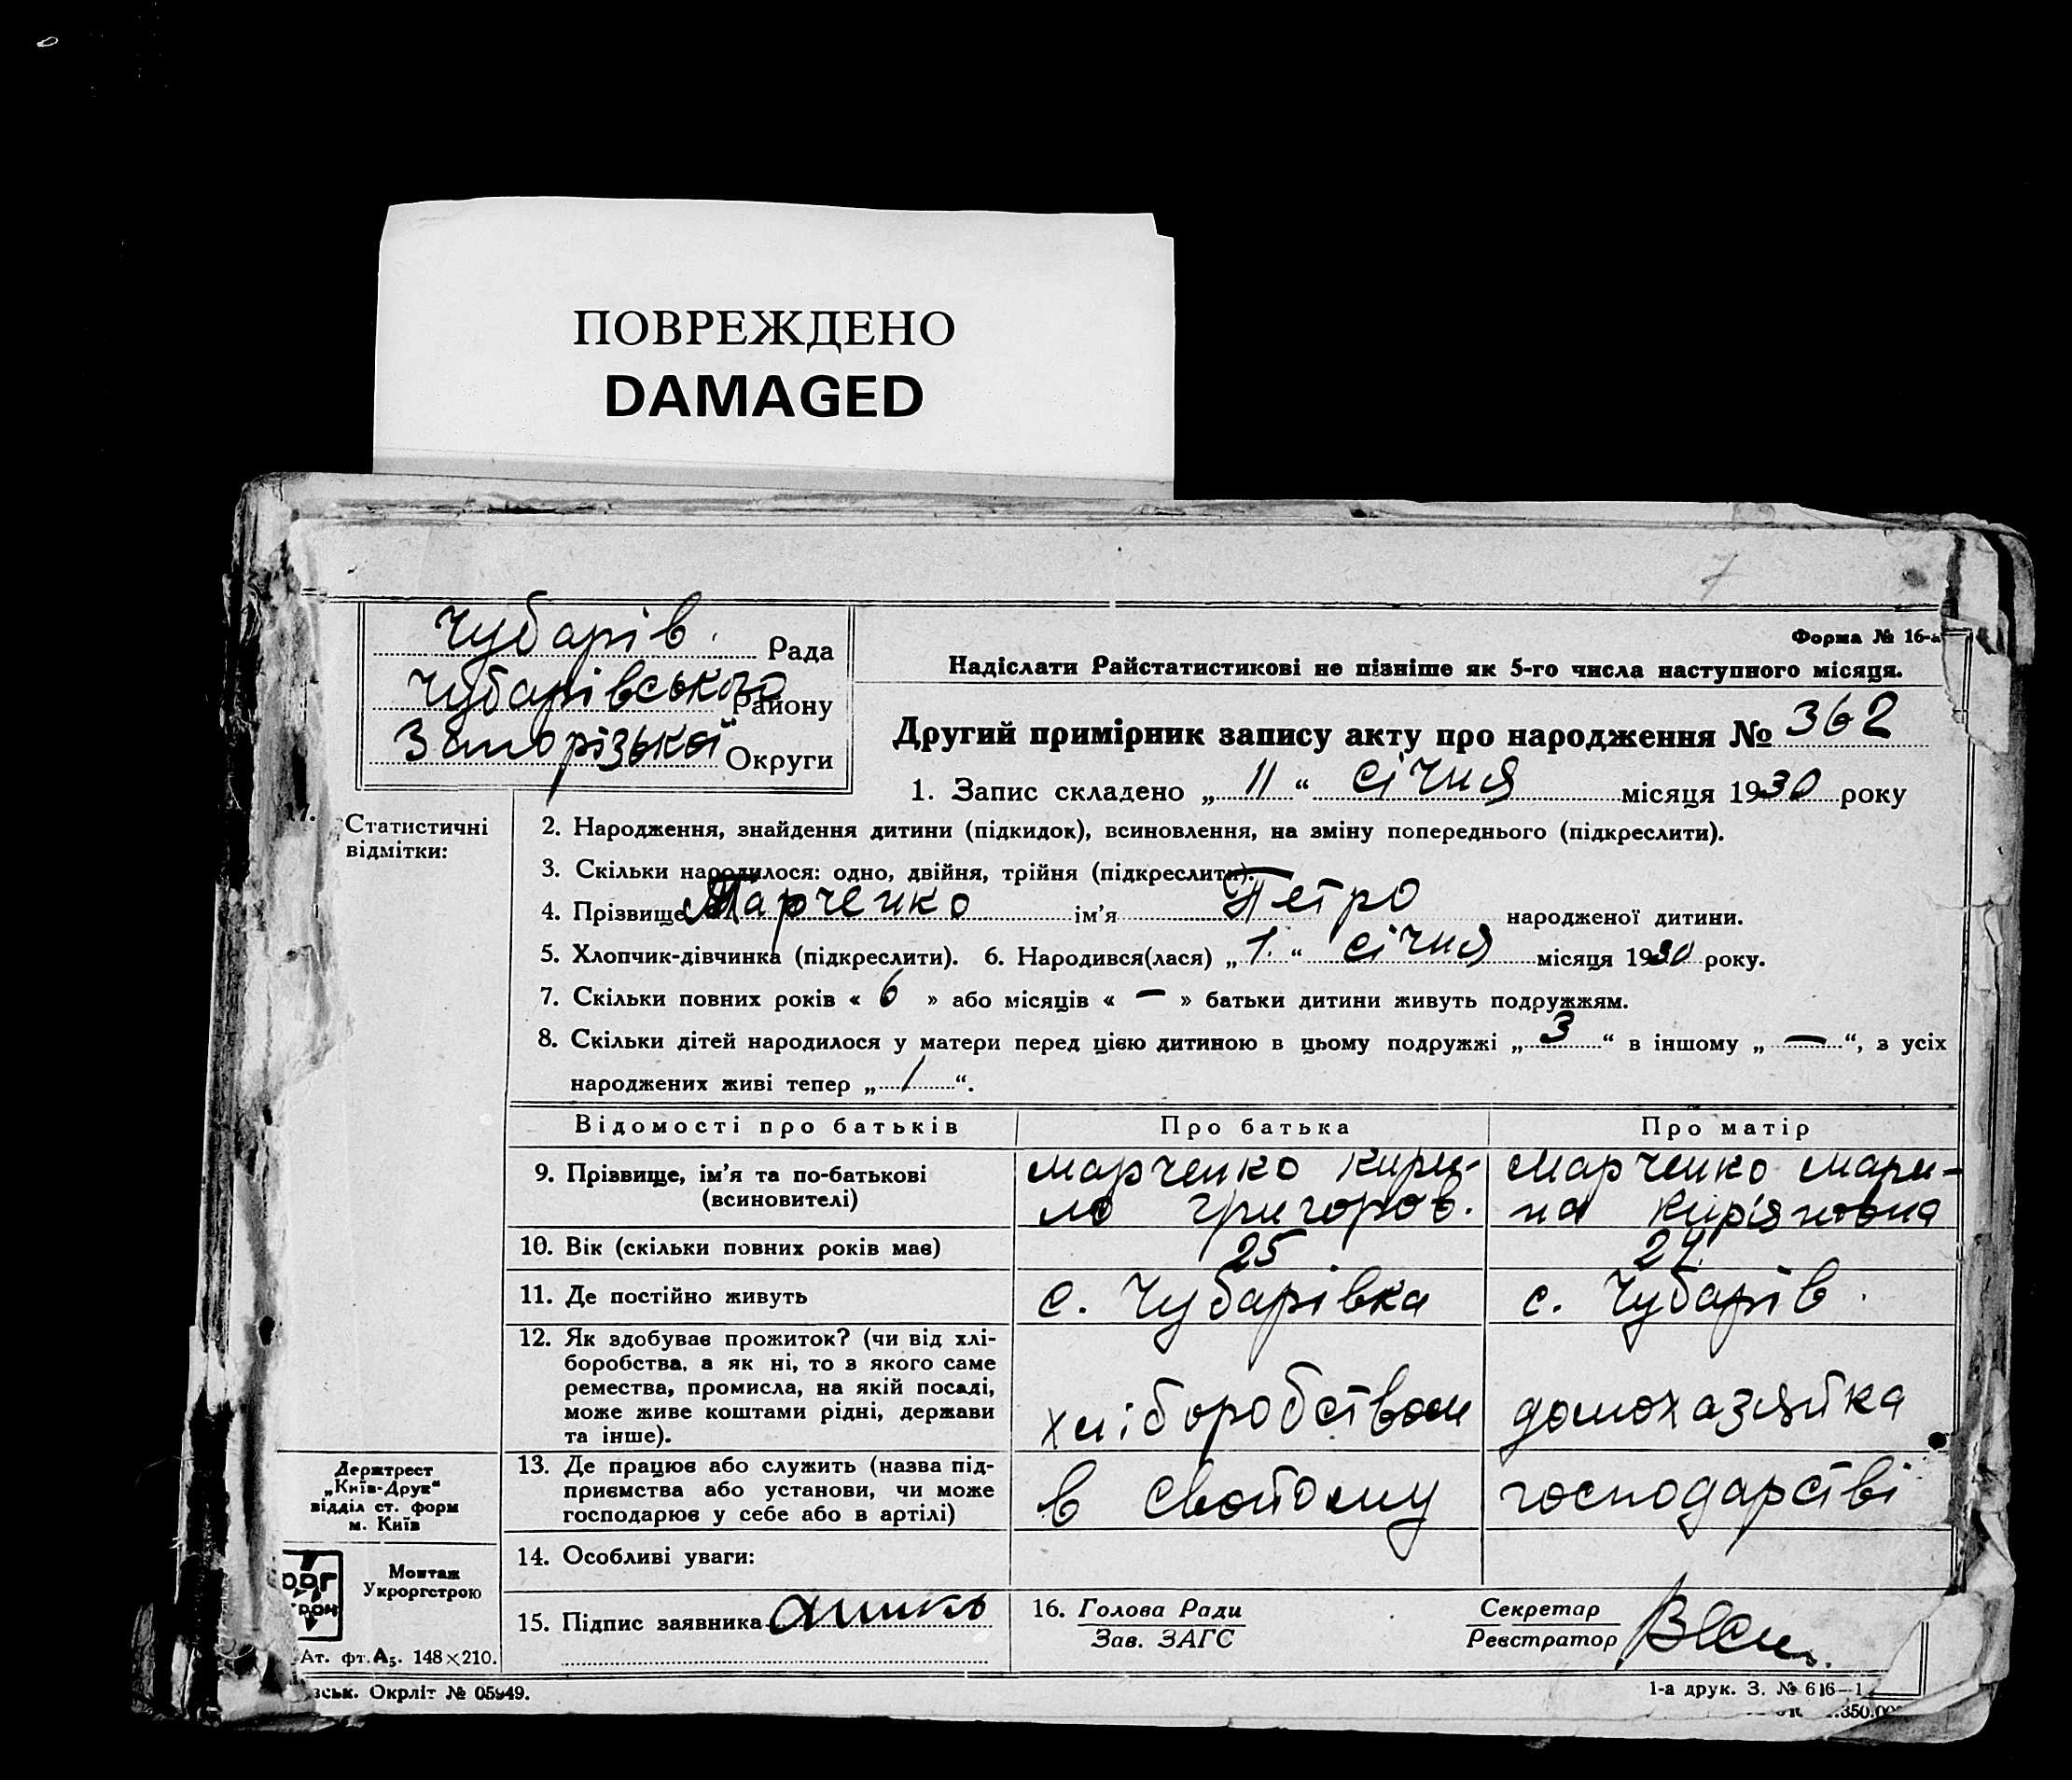 ПОВРЕЖДЕНО
DAMAGED
7
Чубарів. Рада
Чубарівського Району
Запорізької Округи
Форма № 16-а
Надіслати Райстатистикові не пізніше як 5-го числа наступного місяця.
Другий примірник запису акту про народження № 362
1. Запис складено „ 11 “ січня місяця 1930 року
Статистичні
відмітки:
2. Народження, знайдення дитини (підкидок), всиновлення, на зміну попереднього (підкреслити).
3. Скільки народилося: одно, двійня, трійня (підкреслити).
4. Прізвище Марченко ім'я Петро народженої дитини.
5. Хлопчик-дівчинка (підкреслити). 6. Народився(лася) „ 1. “ січня місяця 1930 року.
7. Скільки повних років « 6 » або місяців « — » батьки дитини живуть подружжям.
8. Скільки дітей народилося у матери перед цією дитиною в цьому подружжі „ 3 “ в іншому „ — “, з усіх
народжених живі тепер „ 1 “.
Відомості про батьків Про батька Про матір
9. Прізвище, ім'я та по-батькові
(всиновителі)
Марченко Кири-
ло Григоров.
Марченко Мари-
на Киріяновна
10. Вік (скільки повних років має) 25
11. Де постійно живуть с. Чубарівка с. Чубарів.
12. Як здобуває прожиток? (чи від хлі-
боробства, а як ні, то з якого саме
ремества, промисла, на якій посаді,
може живе коштами рідні, держави
та інше).
хліборобством домохазяйка
13. Де працює або служить (назва під-
приємства або установи, чи може
господарює у себе або в артілі)
в свойому господарстві
14. Особливі уваги:
15. Підпис заявника
16. Голова Ради
Зав. ЗАГС
Секретар
Реєстратор
Держтрест
„Київ-Друк“
відділ ст. форм
м. Київ
Монтаж
Укроргстрою
Ат. фт. А₅. 148×210.
Окрліт № 05949.
1-а друк. З. № 616—1